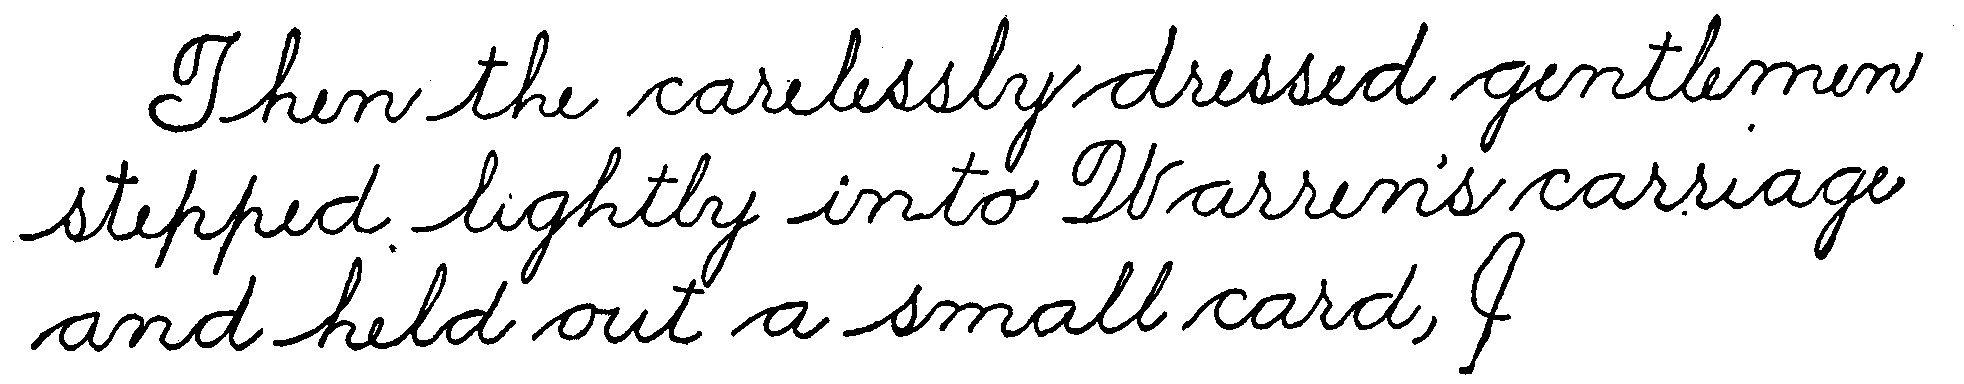 Then the carelessly dressed gentlemen
stepped lightly into Warren's carriage
and held out a small card, I